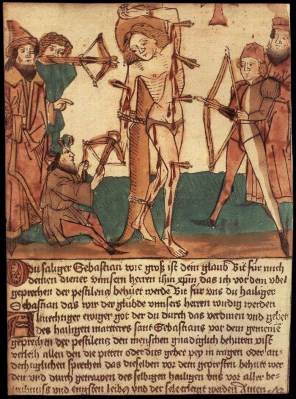 O du saliger Sebastian wie groß ist dein glaub Bit für mich
deinen diener vnnsern herren ihm xpm das ich vor dem übel
geprechen der pestilentz behüt werde Bit für vns du hailiger
Sebastian das wir der glübde vnnsers herren wirdig werden
Allmechtiger ewiger got der du durch das verdinen vnd gebet
des hailigen martrers sant Sebastians vor dem gemeinē
geprechen der pestilentz den menschen gnädiglich behüten pist
verleih allen den die pitten oder diß gebet pey in tragen oder an
dechtiglichen sprechen das dieselben vor dem geprechen behüt wer
den vnd durch getrawen des selbigen hailigen vns vor aller be
trübnuss vnd engsten leibs vnd der sele erlöst werden Amen